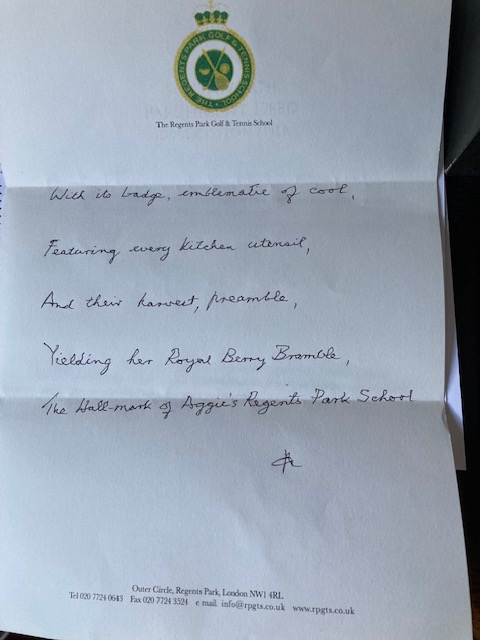 THE REGENTS PARK GOLF & TENNIS SCHOOL
The Regents Park Golf & Tennis School
With its badge, emblematic of cool,
Featuring every kitchen utensil,
And their harvest, preamble,
Yielding her Royal Berry Bramble,
The Hall-mark of Aggie's Regents Park School
Outer Circle, Regents Park, London NW1 4RL
Tel 020 7724 0643 Fax 020 7724 3524 e mail. info@rpgts.co.uk www.rpgts.co.uk